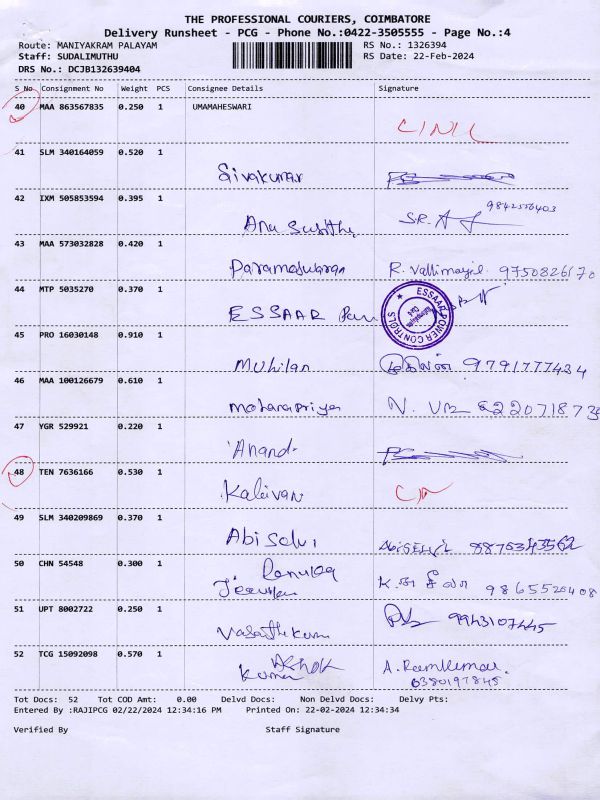 THE PROFESSIONAL COURIERS, COIMBATORE
Delivery Runsheet - PCG - Phone No.:0422-3505555 - Page No.:4
Route: MANIYAKRAM PALAYAM RS No.: 1326394
Staff: SUDALIMUTHU RS Date: 22-Feb-2024
DRS No.: DCJB132639404
S No Consignment No Weight PCS Consignee Details Signature
40 MAA 863567835 0.250 1 UMAMAHESWARI
41 SLM 340164059 0.520 1
Sivakumar
42 IXM 505853594 0.395 1
9842556403
Anu Subitha
43 MAA 573032828 0.420 1
Parameswaran R. Vallimayil 9750826170
44 MTP 5035270 0.370 1
ESSAAR ESSAAR POWER CONTROLS
45 PRO 16030148 0.910 1
Mukilan 9791777434
46 MAA 100126679 0.610 1
Mohanapriya
47 YGR 529921 0.220 1
Anand
48 TEN 7636166 0.530 1
Kalaivan
49 SLM 340209869 0.370 1
Abi Selvi 8875343562
50 CHN 54548 0.300 1
9865526408
51 UPT 8002722 0.250 1
Vasanthakumar
52 TCG 15092098 0.570 1
Ashok A. Ramkumar.
Kumar
Tot Docs: 52 Tot COD Amt: 0.00 Delvd Docs: Non Delvd Docs: Delvy Pts:
Entered By :RAJIPCG 02/22/2024 12:34:16 PM Printed On: 22-02-2024 12:34:34
Verified By Staff Signature